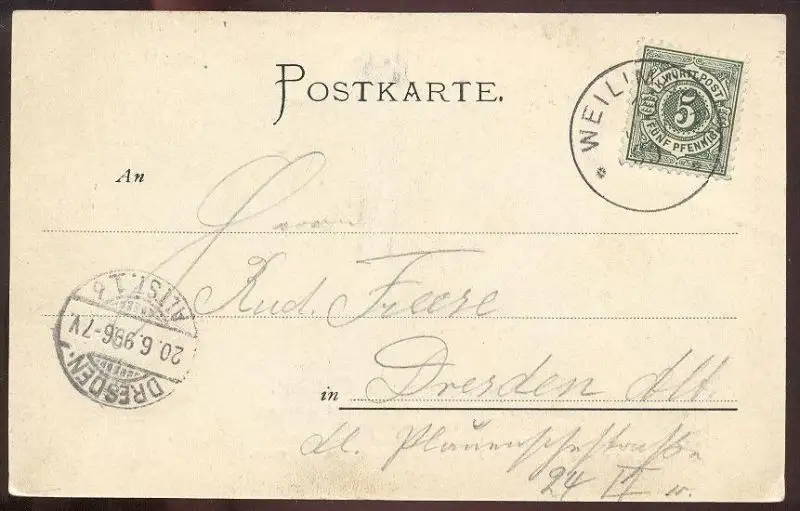 POSTKARTE.
WEILI
K. WÜRTT. POST
5
FÜNF PFENNIG
An
Herrn
Rud. Freese
in Dresden Alt.
kl. Plauenschestraße
24 II
DRESDEN-ALTST. 1.b
20.6.99 6-7V.